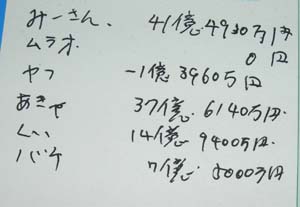 みーさん、 41億4930万1千
ムラオ 0円
ヤフ -1億3960万円
あきや 37億、6140万円.
くい 14億 9400万円.
バケ 7億. 5000万円